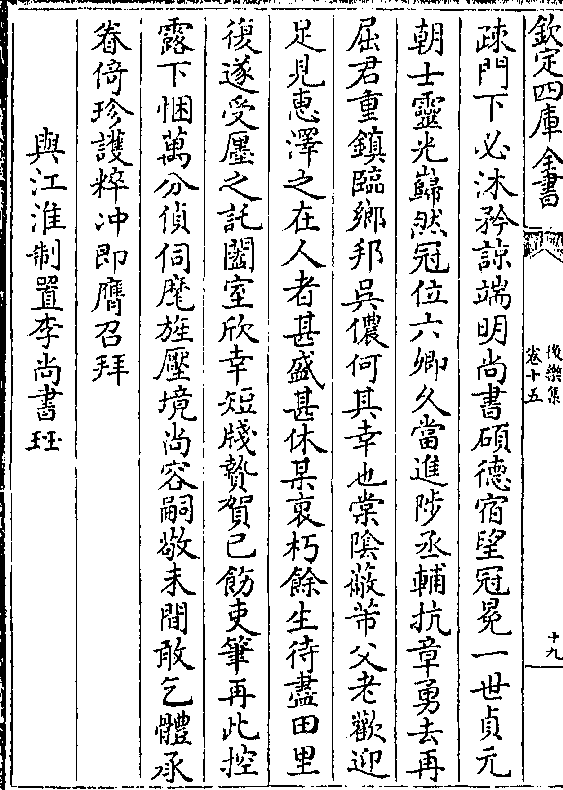 欽定四庫全書
後樂集
卷十五
十九
疎門下必沐矜諒端明尚書碩德宿望冠冕一世貞元
朝士靈光巋然冠位六卿久當進陟丞輔抗章勇去再
屈君重鎮臨鄉邦吳儂何其幸也棠陰蔽芾父老歡迎
足見惠澤之在人者甚盛甚休某衰朽餘生待盡田里
復遂受廛之託闔室欣幸短牋贄賀已飭吏筆再此控
露下悃萬分偵伺麾旌壓境尚容嗣敬未間敢乞體承
眷倚珍護粹冲即膺召拜
與江淮制置李尚書珏